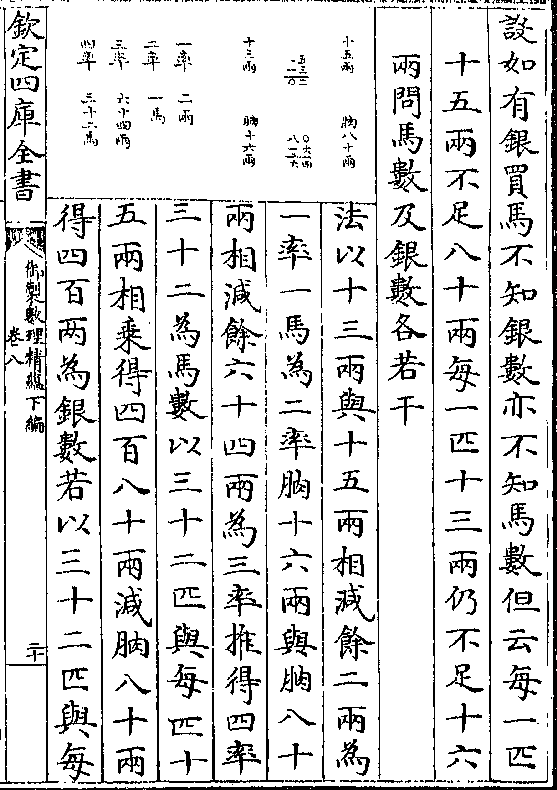 設如有銀買馬不知銀數亦不知馬數但云每一匹
十五兩不足八十兩每一匹十三兩仍不足十六
兩問馬數及銀數各若干
十五兩 朒八十兩
十三兩 朒十六兩
一率 二兩
二率 一馬
三率 六十四兩
四率 三十二馬
法以十三兩與十五兩相減餘二兩為
一率一馬為二率朒十六兩與朒八十
兩相減餘六十四兩為三率推得四率
三十二為馬數以三十二匹與每匹十
五兩相乘得四百八十兩減朒八十兩
得四百两為銀數若以三十二匹與每
欽定四庫全書
御製數理精蘊下編
卷八
二十